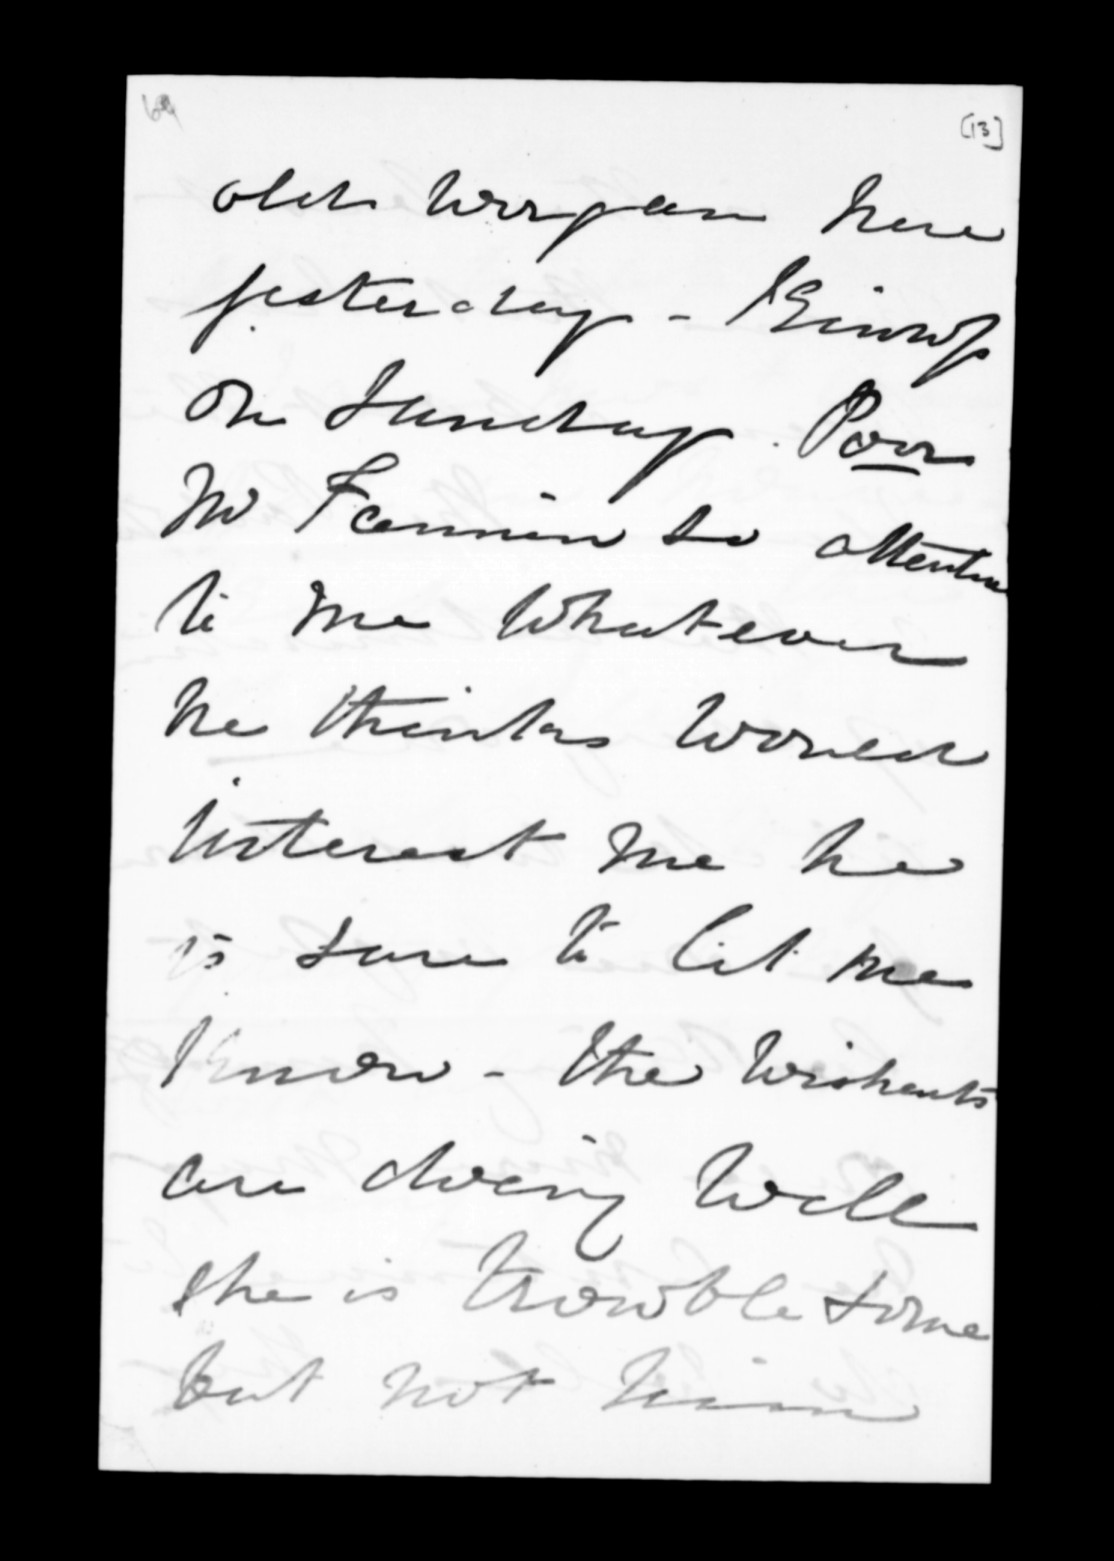 [13]
old Worgan here
yesterday -
on Sunday. Poor
Mr Fannin so attentive
to me whatever
he thinks would
interest me he
is sure to let me
know - the Wishants
are doing well
she is trowble some
but not him